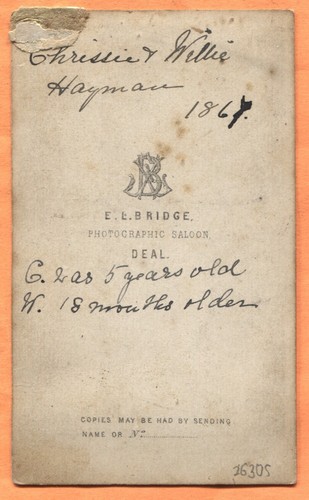 Chrissie & Willie
Hayman
1867.
E. L. BRIDGE,
PHOTOGRAPHIC SALOON,
DEAL.
C. was 5 years old
W. 18 months older
COPIES MAY BE HAD BY SENDING
NAME OR No
16305